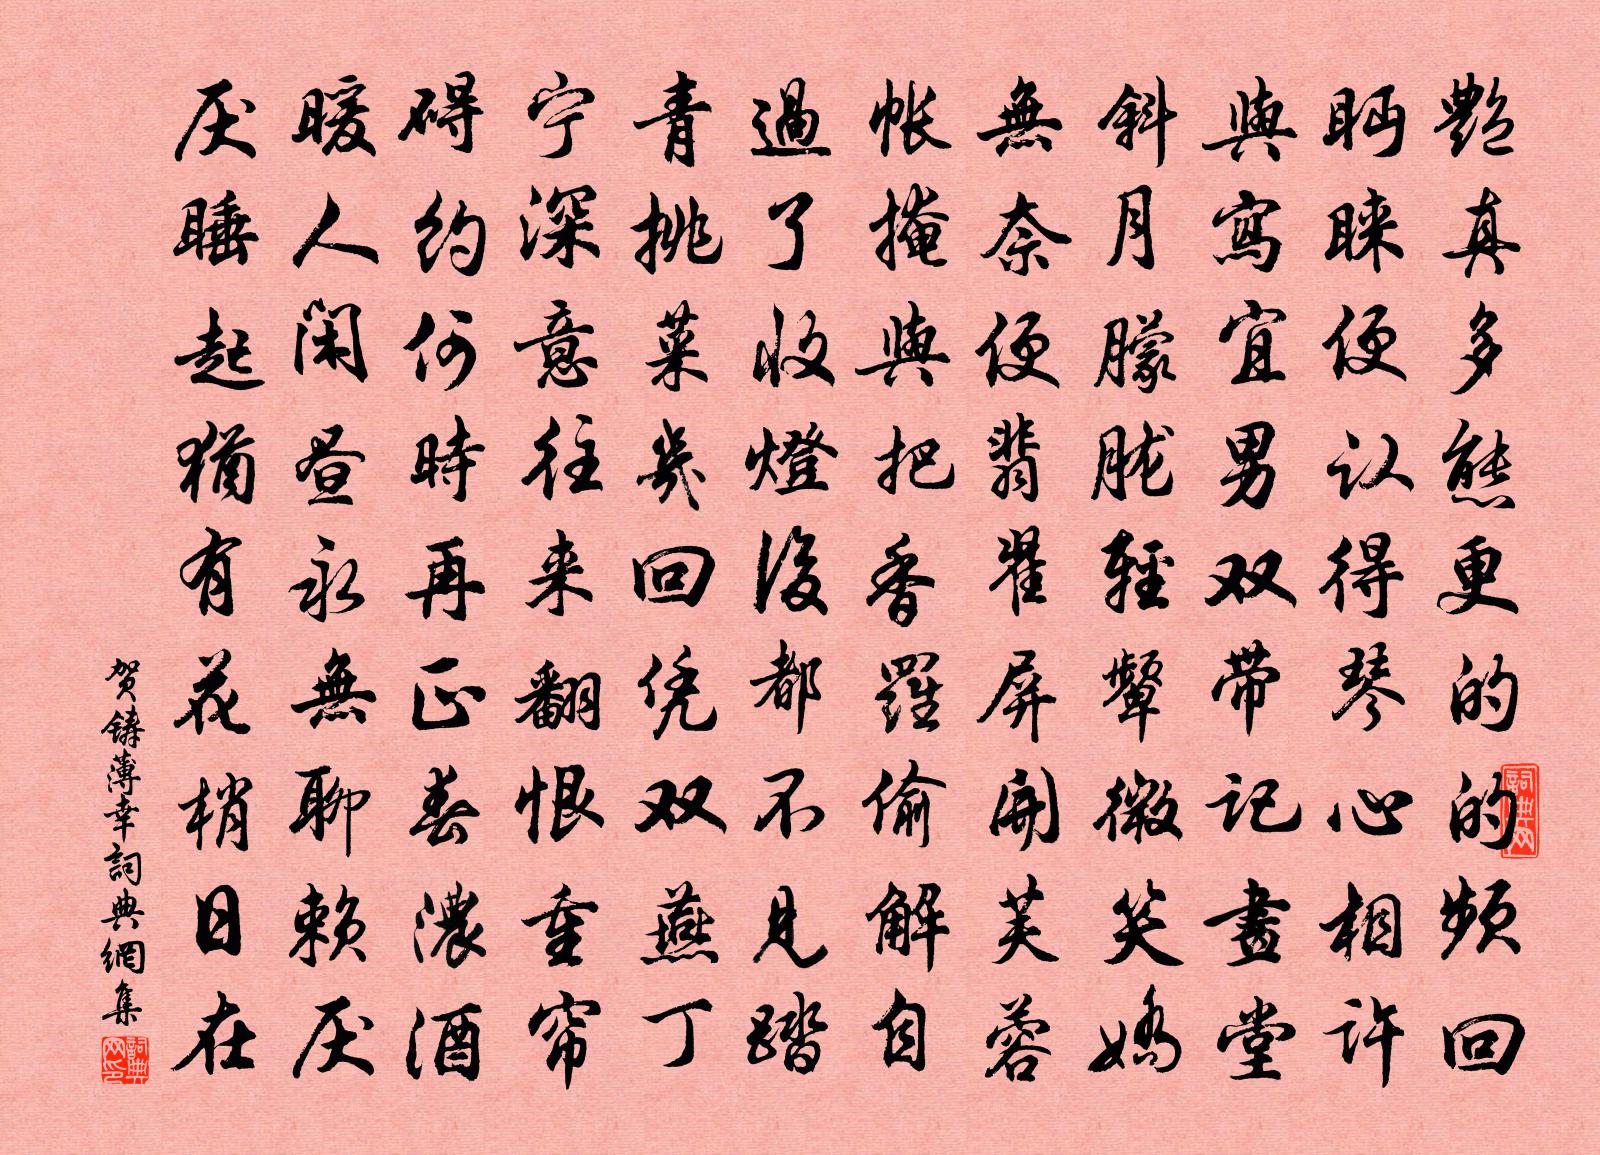 艷真多態更的的频回
眄睐便认得琴心相许
與寫宜男双带记畫堂
斜月朦胧輕顰微笑嬌
無奈便翡翠屏開芙蓉
帐掩與把香羅偷解自
過了收燈後都不見踏
青挑菜幾回凭双燕丁
宁深意往来翻恨重帘
碍约何時再正春濃酒
暖人闲昼永無聊赖厌
厌睡起猶有花梢日在
贺鑄薄幸詞典網集
詞典网
詞典网印